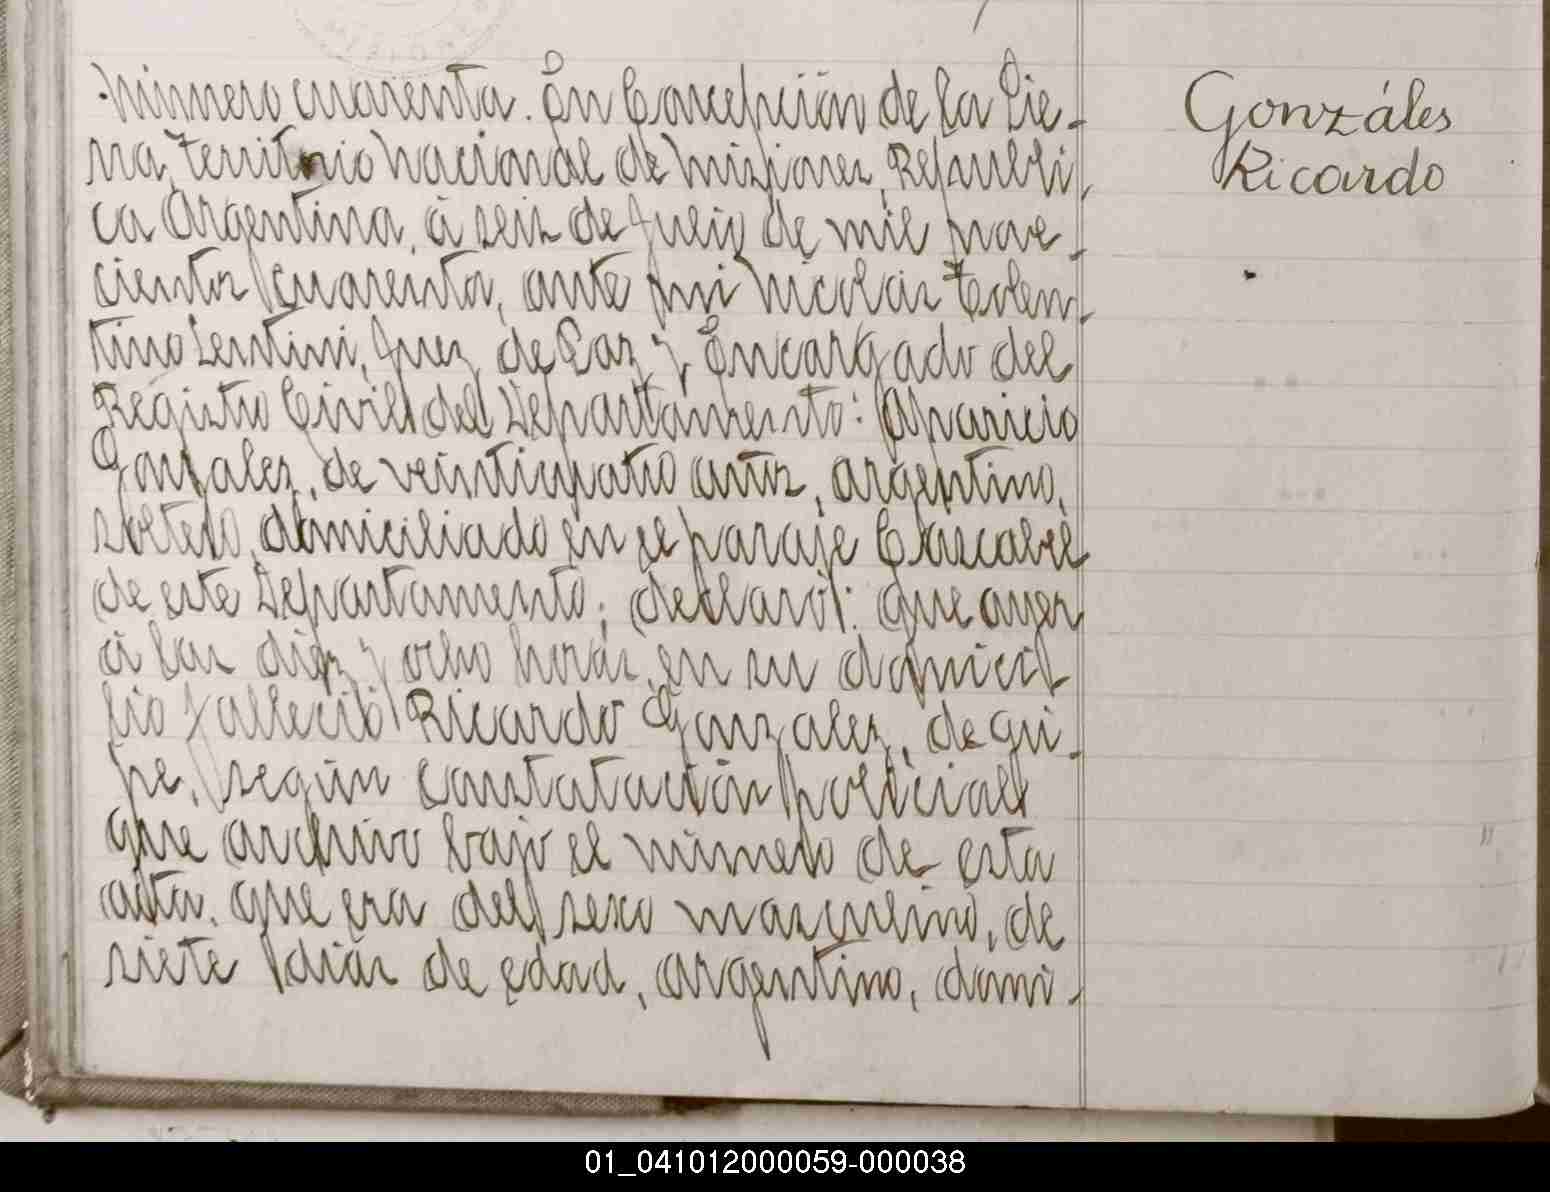 Número cuarenta. En Concepción de la Sie-
rra, Territorio Nacional de Misiones, Repúbli-
ca Argentina, á seis de Julio de mil nove-
cientos cuarenta, ante mi Nicolás Tolen-
tino Lentini, Juez de Paz y Encargado del
Registro Civil del Departamento: Aparicio
Gonzalez, de veinticuatro años, argentino,
soltero, domiciliado en el paraje Cascabel
de este Departamento; declaró: que ayer
á las diez y ocho horas, en su domici-
lio falleció Ricardo Gonzalez, de gri-
pe, según constatación policial
que archivo bajo el número de esta
acta. que era del sexo masculino, de
siete días de edad, argentino, domi-
Gonzáles
Ricardo
01_041012000059-000038